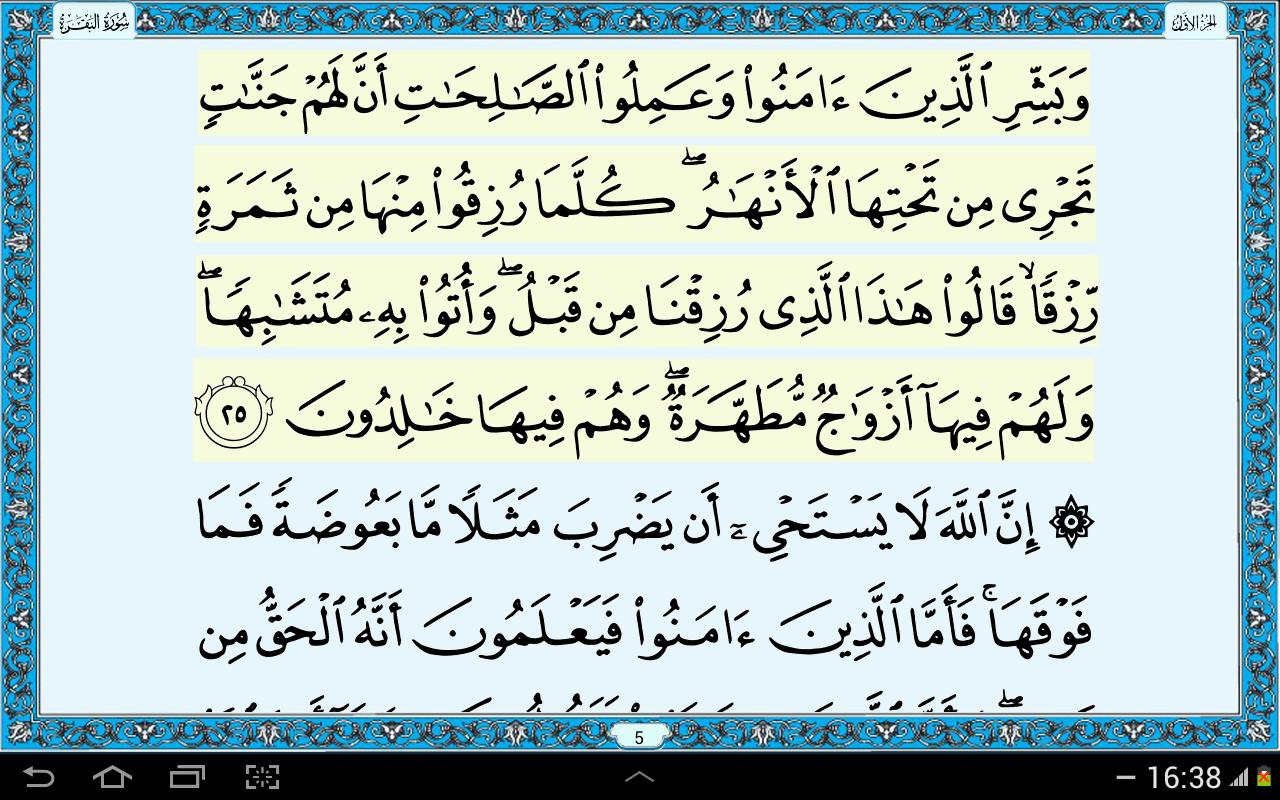 سُورَةُ البَقَرَةِ
الجُزْءُ الأَوَّلُ
وَبَشِّرِ ٱلَّذِينَ ءَامَنُوا۟ وَعَمِلُوا۟ ٱلصَّـٰلِحَـٰتِ أَنَّ لَهُمْ جَنَّـٰتٍ
تَجْرِى مِن تَحْتِهَا ٱلْأَنْهَـٰرُ ۖ كُلَّمَا رُزِقُوا۟ مِنْهَا مِن ثَمَرَةٍ
رِّزْقًا ۙ قَالُوا۟ هَـٰذَا ٱلَّذِى رُزِقْنَا مِن قَبْلُ ۖ وَأُتُوا۟ بِهِۦ مُتَشَـٰبِهًا ۖ
وَلَهُمْ فِيهَآ أَزْوَٰجٌ مُّطَهَّرَةٌ ۖ وَهُمْ فِيهَا خَـٰلِدُونَ ٢٥
۞ إِنَّ ٱللَّهَ لَا يَسْتَحْىِۦٓ أَن يَضْرِبَ مَثَلًا مَّا بَعُوضَةً فَمَا
فَوْقَهَا ۚ فَأَمَّا ٱلَّذِينَ ءَامَنُوا۟ فَيَعْلَمُونَ أَنَّهُ ٱلْحَقُّ مِن
5
16:38